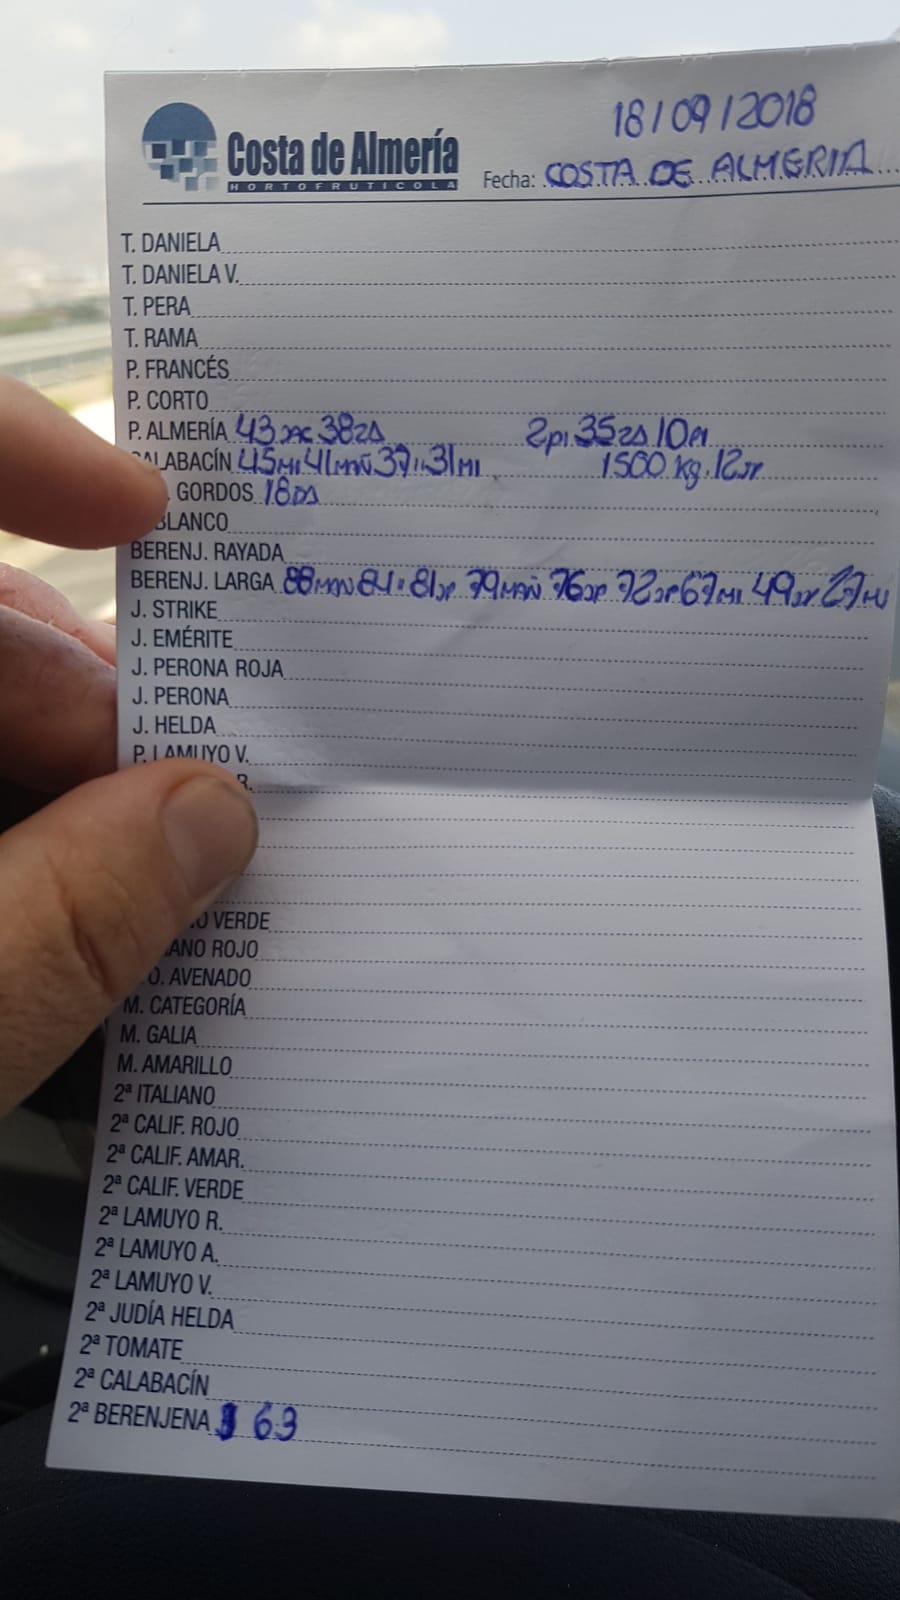 18/09/2018
Costa de Almería
HORTOFRUTICOLA
Fecha: COSTA DE ALMERIA
T. DANIELA
T. DANIELA V.
T. PERA
T. RAMA
P. FRANCÉS
P. CORTO
P. ALMERÍA 43 38 2pi 35 10
CALABACÍN 45MI 41MAÑ 37 11 31MI 1500 kg. 12
GORDOS 18
BLANCO
BERENJ. RAYADA
BERENJ. LARGA 88MAÑ 84 81 79MAÑ 76 72 67MI 49 27
J. STRIKE
J. EMÉRITE
J. PERONA ROJA
J. PERONA
J. HELDA
P. LAMUYO V.
R.
O VERDE
ANO ROJO
O. AVENADO
M. CATEGORÍA
M. GALIA
M. AMARILLO
2ª ITALIANO
2ª CALIF. ROJO
2ª CALIF. AMAR.
2ª CALIF. VERDE
2ª LAMUYO R.
2ª LAMUYO A.
2ª LAMUYO V.
2ª JUDÍA HELDA
2ª TOMATE
2ª CALABACÍN
2ª BERENJENA 63